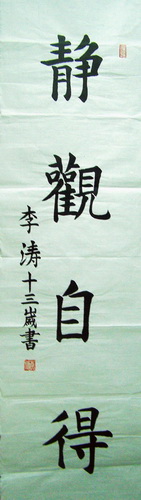 靜觀自得
李涛十三嵗書